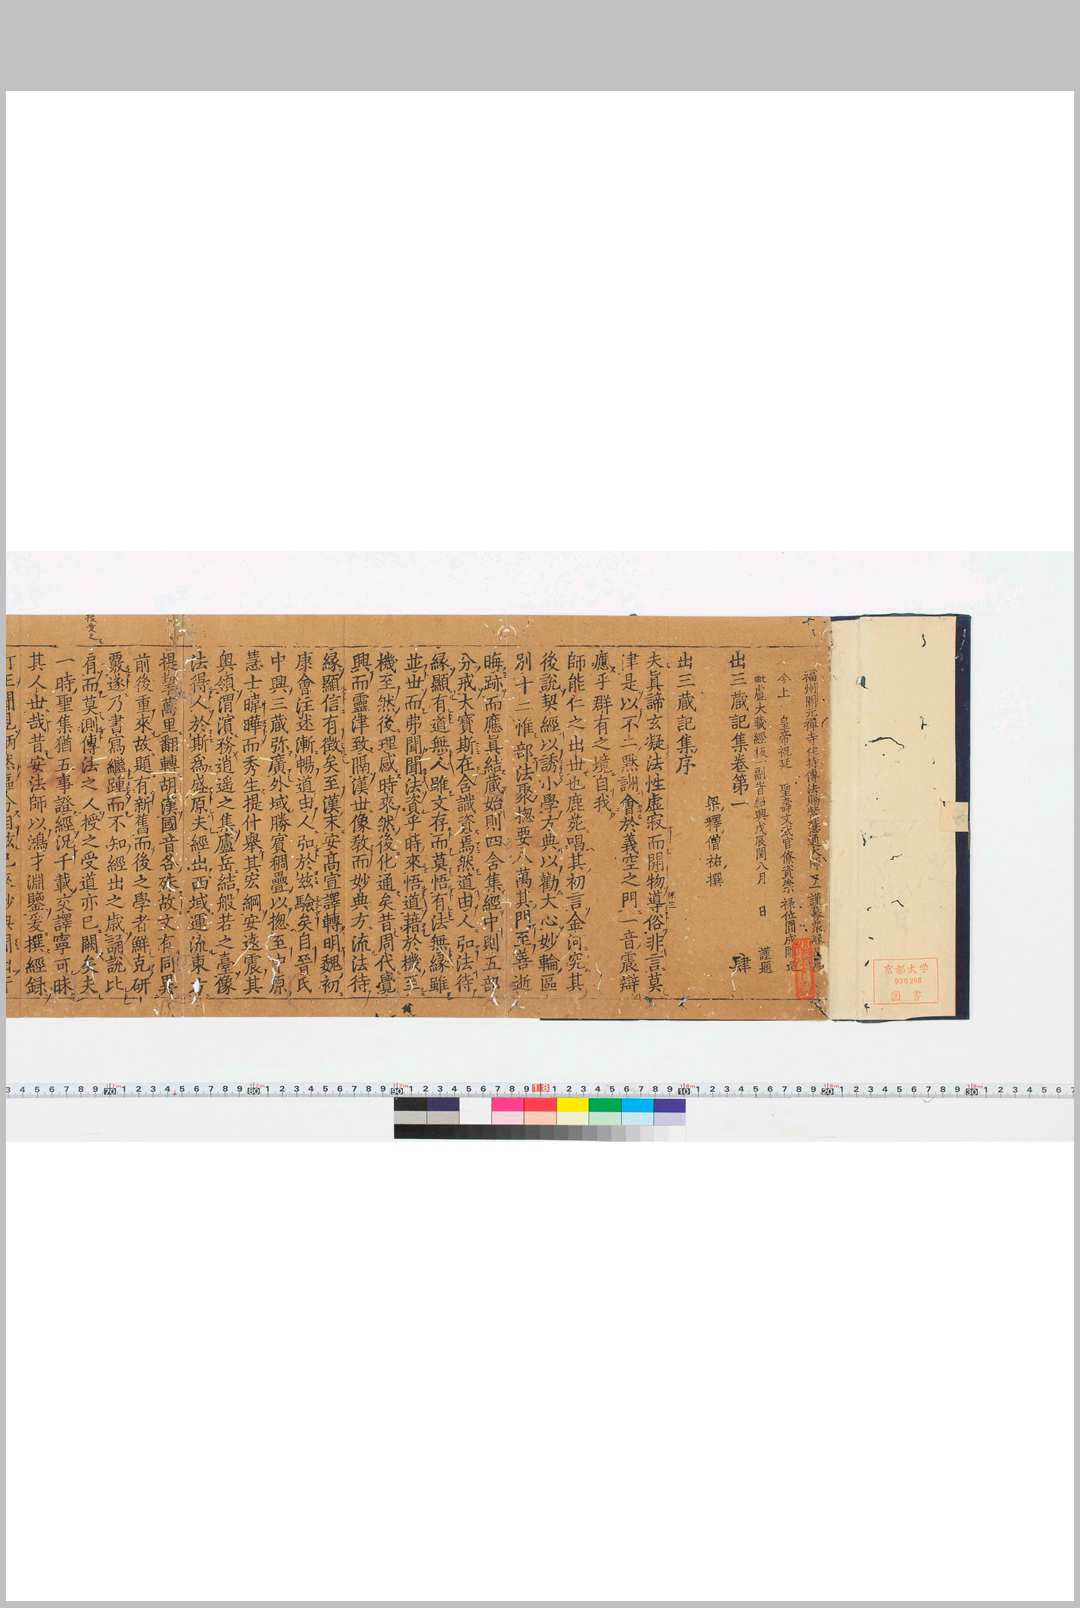 福州開元禪寺住持傳法賜紫慧通大師了一謹募衆緣恭爲
今上 皇帝祝延 聖壽文武官僚資崇 祿位圓成雕造
毗盧大藏經板一副昔紹興戊辰閏八月 日 謹題
出三藏記集卷第一 肆
梁 釋僧祐 撰
出三藏記集序
夫眞諦玄凝法性虛寂而開物導俗非言莫
津是以不二默詶會於義空之門一音震辯
應乎群有之境自我
師能仁之出世也鹿苑唱其初言金河究其
後說契經以誘小學方典以勸大心妙輪區
別十二惟部法聚揔要八萬其門至善逝
晦跡而應眞結藏始則四含集經中則五部
分戒大寶斯在含識資焉然道由人弘法待
緣顯有道無人雖文存而莫悟有法無緣雖
並世而弗聞聞法資乎時來悟道藉於機至
機至然後理感時來然後化通矣昔周代覺
興而靈津致隔漢世像教而妙典方流法待
緣顯信有徵矣至漢末安高宣譯轉明魏初
康會注述漸暢道由人弘於茲驗矣自晉氏
中興三藏弥廣外域勝賓稠疊以揔至中原
慧士暐曄而秀生提什舉其宏綱安遠震其
奧領渭濱務逍遥之集廬岳結般若之臺像
法得人於斯爲盛原夫經出西域運流東方
提挈萬里翻轉胡漢國音各殊故文有同異
前後重來故題有新舊而後之學者鮮克研
覈遂乃書寫繼踵而不知經出之歲誦說比
肩而莫測傳法之人授之受道亦已闕矣夫
一時聖集猶五事證經況千載交譯寧可昧
其人世哉昔安法師以鴻才淵鑒爰撰經録
京都大学
図書